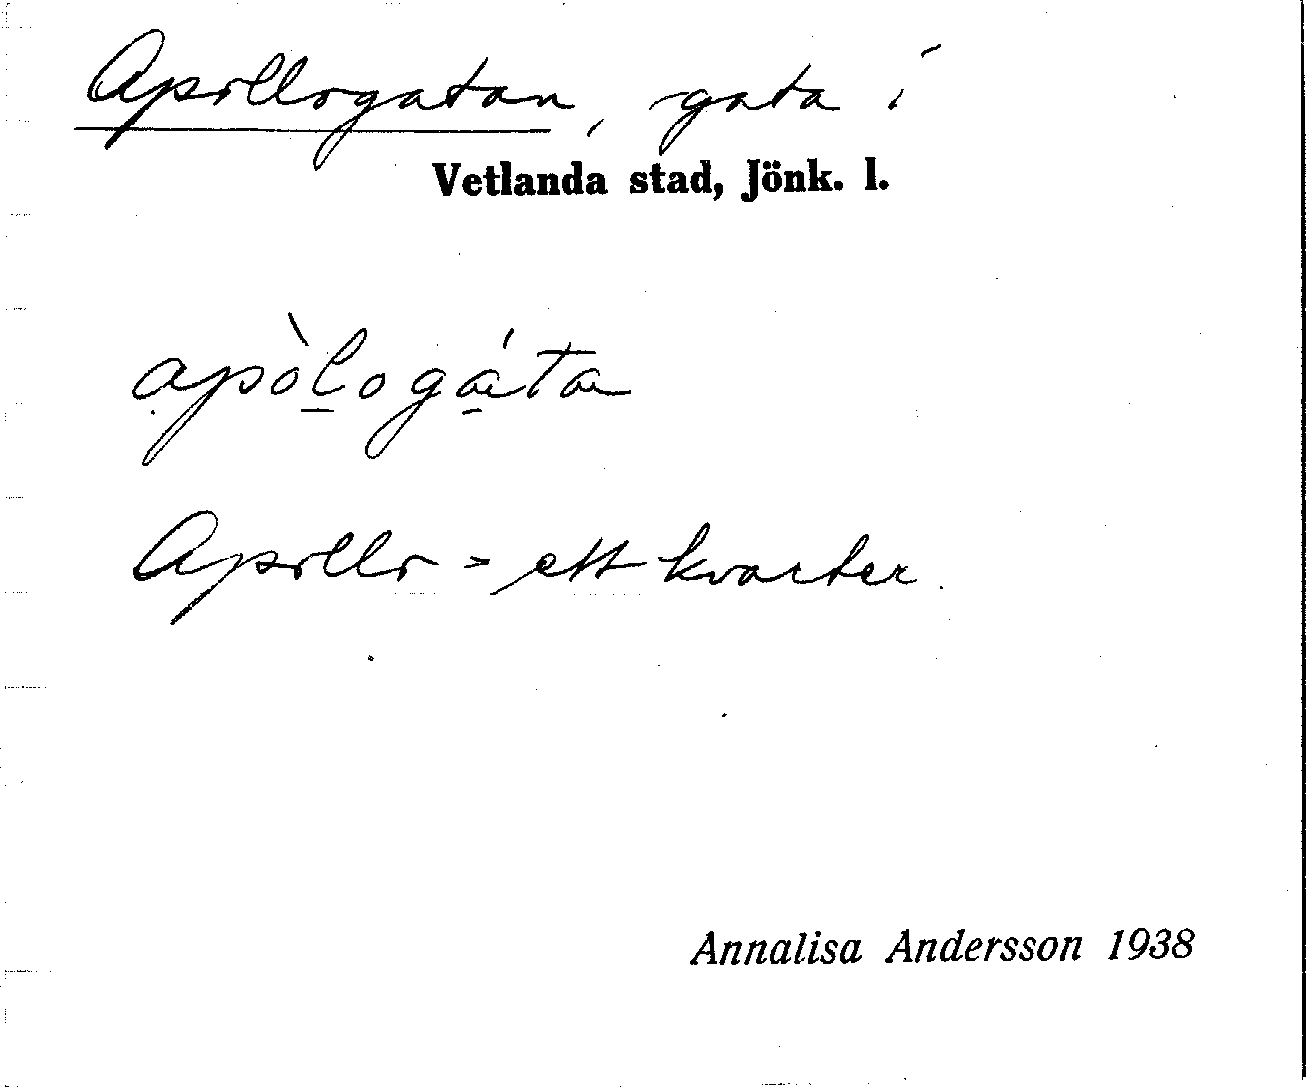 Apollogatan, gata i
Vetlanda stad, Jönk. l.
apòl̲ogá̲ta
Apollo = ett kvarter.
Annalisa Andersson 1938